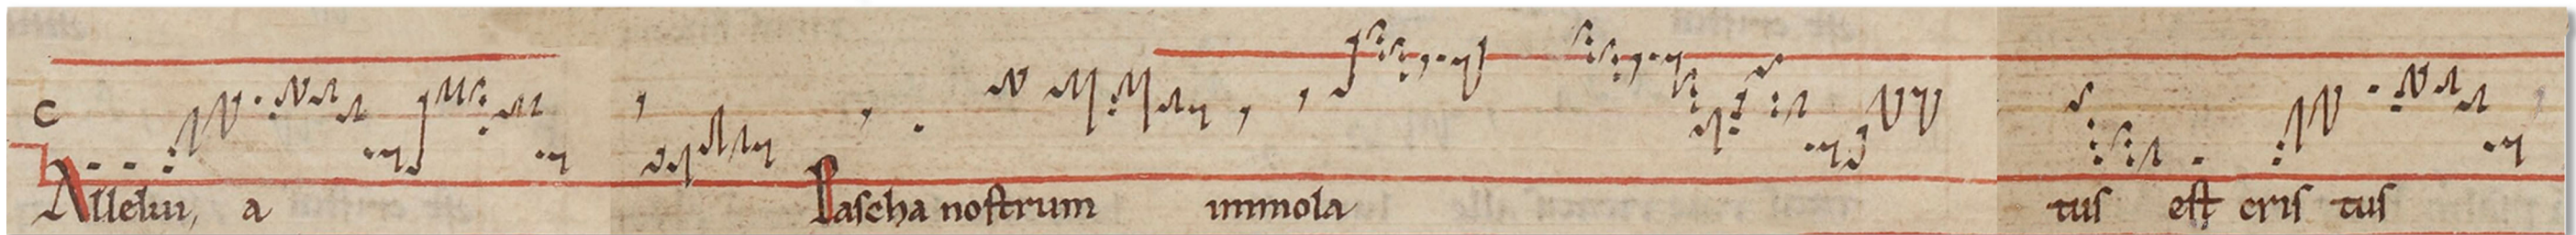 C
Allelui, a Pascha nostrum immola tus est cris tus